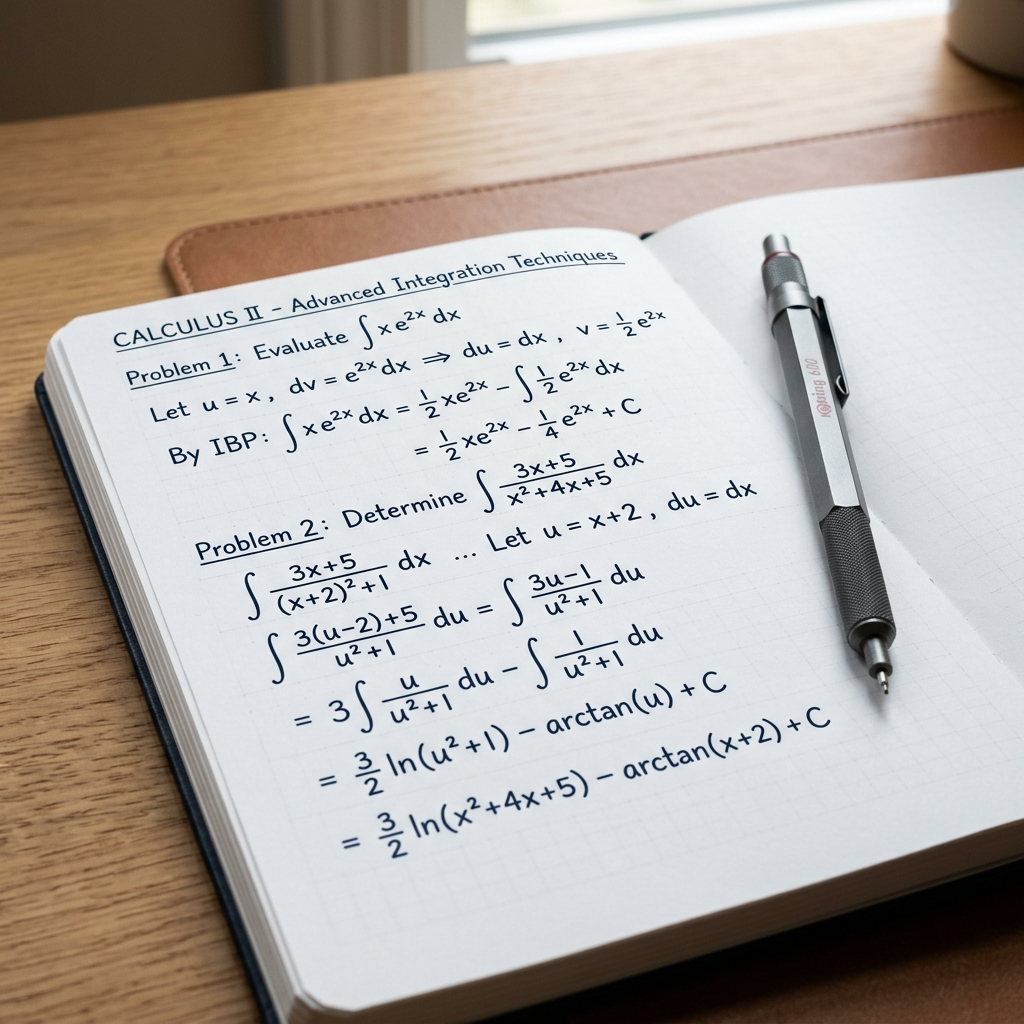 CALCULUS II - Advanced Integration Techniques
Problem 1: Evaluate ∫ x e^{2x} dx
Let u = x, dv = e^{2x} dx ⇒ du = dx, v = \frac{1}{2} e^{2x}
By IBP: ∫ x e^{2x} dx = \frac{1}{2} x e^{2x} - ∫ \frac{1}{2} e^{2x} dx
= \frac{1}{2} x e^{2x} - \frac{1}{4} e^{2x} + C
Problem 2: Determine ∫ \frac{3x+5}{x^2+4x+5} dx
∫ \frac{3x+5}{(x+2)^2+1} dx ... Let u = x+2, du = dx
∫ \frac{3(u-2)+5}{u^2+1} du = ∫ \frac{3u-1}{u^2+1} du
= 3 ∫ \frac{u}{u^2+1} du - ∫ \frac{1}{u^2+1} du
= \frac{3}{2} ln(u^2+1) - arctan(u) + C
= \frac{3}{2} ln(x^2+4x+5) - arctan(x+2) + C
600